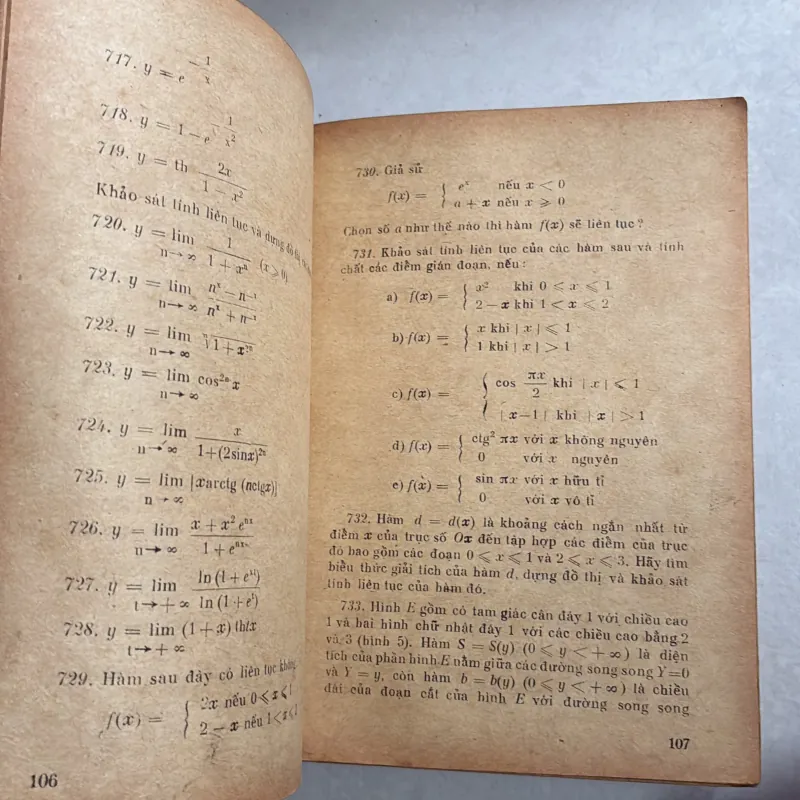 717. y = e^{-1/x}
718. y = 1 - e^{-1/x²}
719. y = th 2x/(1 - x²)
Khảo sát tính liên tục và dựng đồ thị
720. y = lim_{n→∞} 1/(1 + xⁿ) (x ⩾ 0)
721. y = lim_{n→∞} (nˣ - n⁻ˣ)/(nˣ + n⁻ˣ)
722. y = lim_{n→∞} ⁿ√(1 + x²ⁿ)
723. y = lim_{n→∞} cos²ⁿx
724. y = lim_{n→∞} x/(1+(2sinx)²ⁿ)
725. y = lim_{n→∞} |xarctg (nctgx)|
726. y = lim_{n→∞} (x + x² eⁿˣ)/(1 + eⁿˣ)
727. y = lim_{t→+∞} ln (1 + e^{xt})/ln (1 + eᵗ)
728. y = lim_{t→+∞} (1 + x) thtx
729. Hàm sau đây có liên tục không
f(x) = { 2x nếu 0 ⩽ x ⩽ 1
2 - x nếu 1 < x ⩽
106
730. Giả sử
f(x) = { eˣ nếu x < 0
a + x nếu x ⩾ 0
Chọn số a như thế nào thì hàm f(x) sẽ liên tục ?
731. Khảo sát tính liên tục của các hàm sau và tính
chất các điểm gián đoạn, nếu :
a) f(x) = { x² khi 0 ⩽ x ⩽ 1
2 - x khi 1 < x ⩽ 2
b) f(x) = { x khi | x | ⩽ 1
1 khi | x | > 1
c) f(x) = { cos πx/2 khi | x | ⩽ 1
| x-1 | khi | x | > 1
d) f(x) = { ctg² πx với x không nguyên
0 với x nguyên
e) f(x) = { sin πx với x hữu tỉ
0 với x vô tỉ
732. Hàm d = d(x) là khoảng cách ngắn nhất từ
điểm x của trục số Ox đến tập hợp các điểm của trục
đó bao gồm các đoạn 0 ⩽ x ⩽ 1 và 2 ⩽ x ⩽ 3. Hãy tìm
biểu thức giải tích của hàm d, dựng đồ thị và khảo sát
tính liên tục của hàm đó.
733. Hình E gồm có tam giác cân đáy 1 với chiều cao
1 và hai hình chữ nhật đáy 1 với các chiều cao bằng 2
và 3 (hình 5). Hàm S = S(y) (0 ⩽ y < + ∞) là diện
tích của phần hình E nằm giữa các đường song song Y=0
và Y = y, còn hàm b = b(y) (0 ⩽ y < + ∞) là chiều
dài của đoạn cắt của hình E với đường song song
107